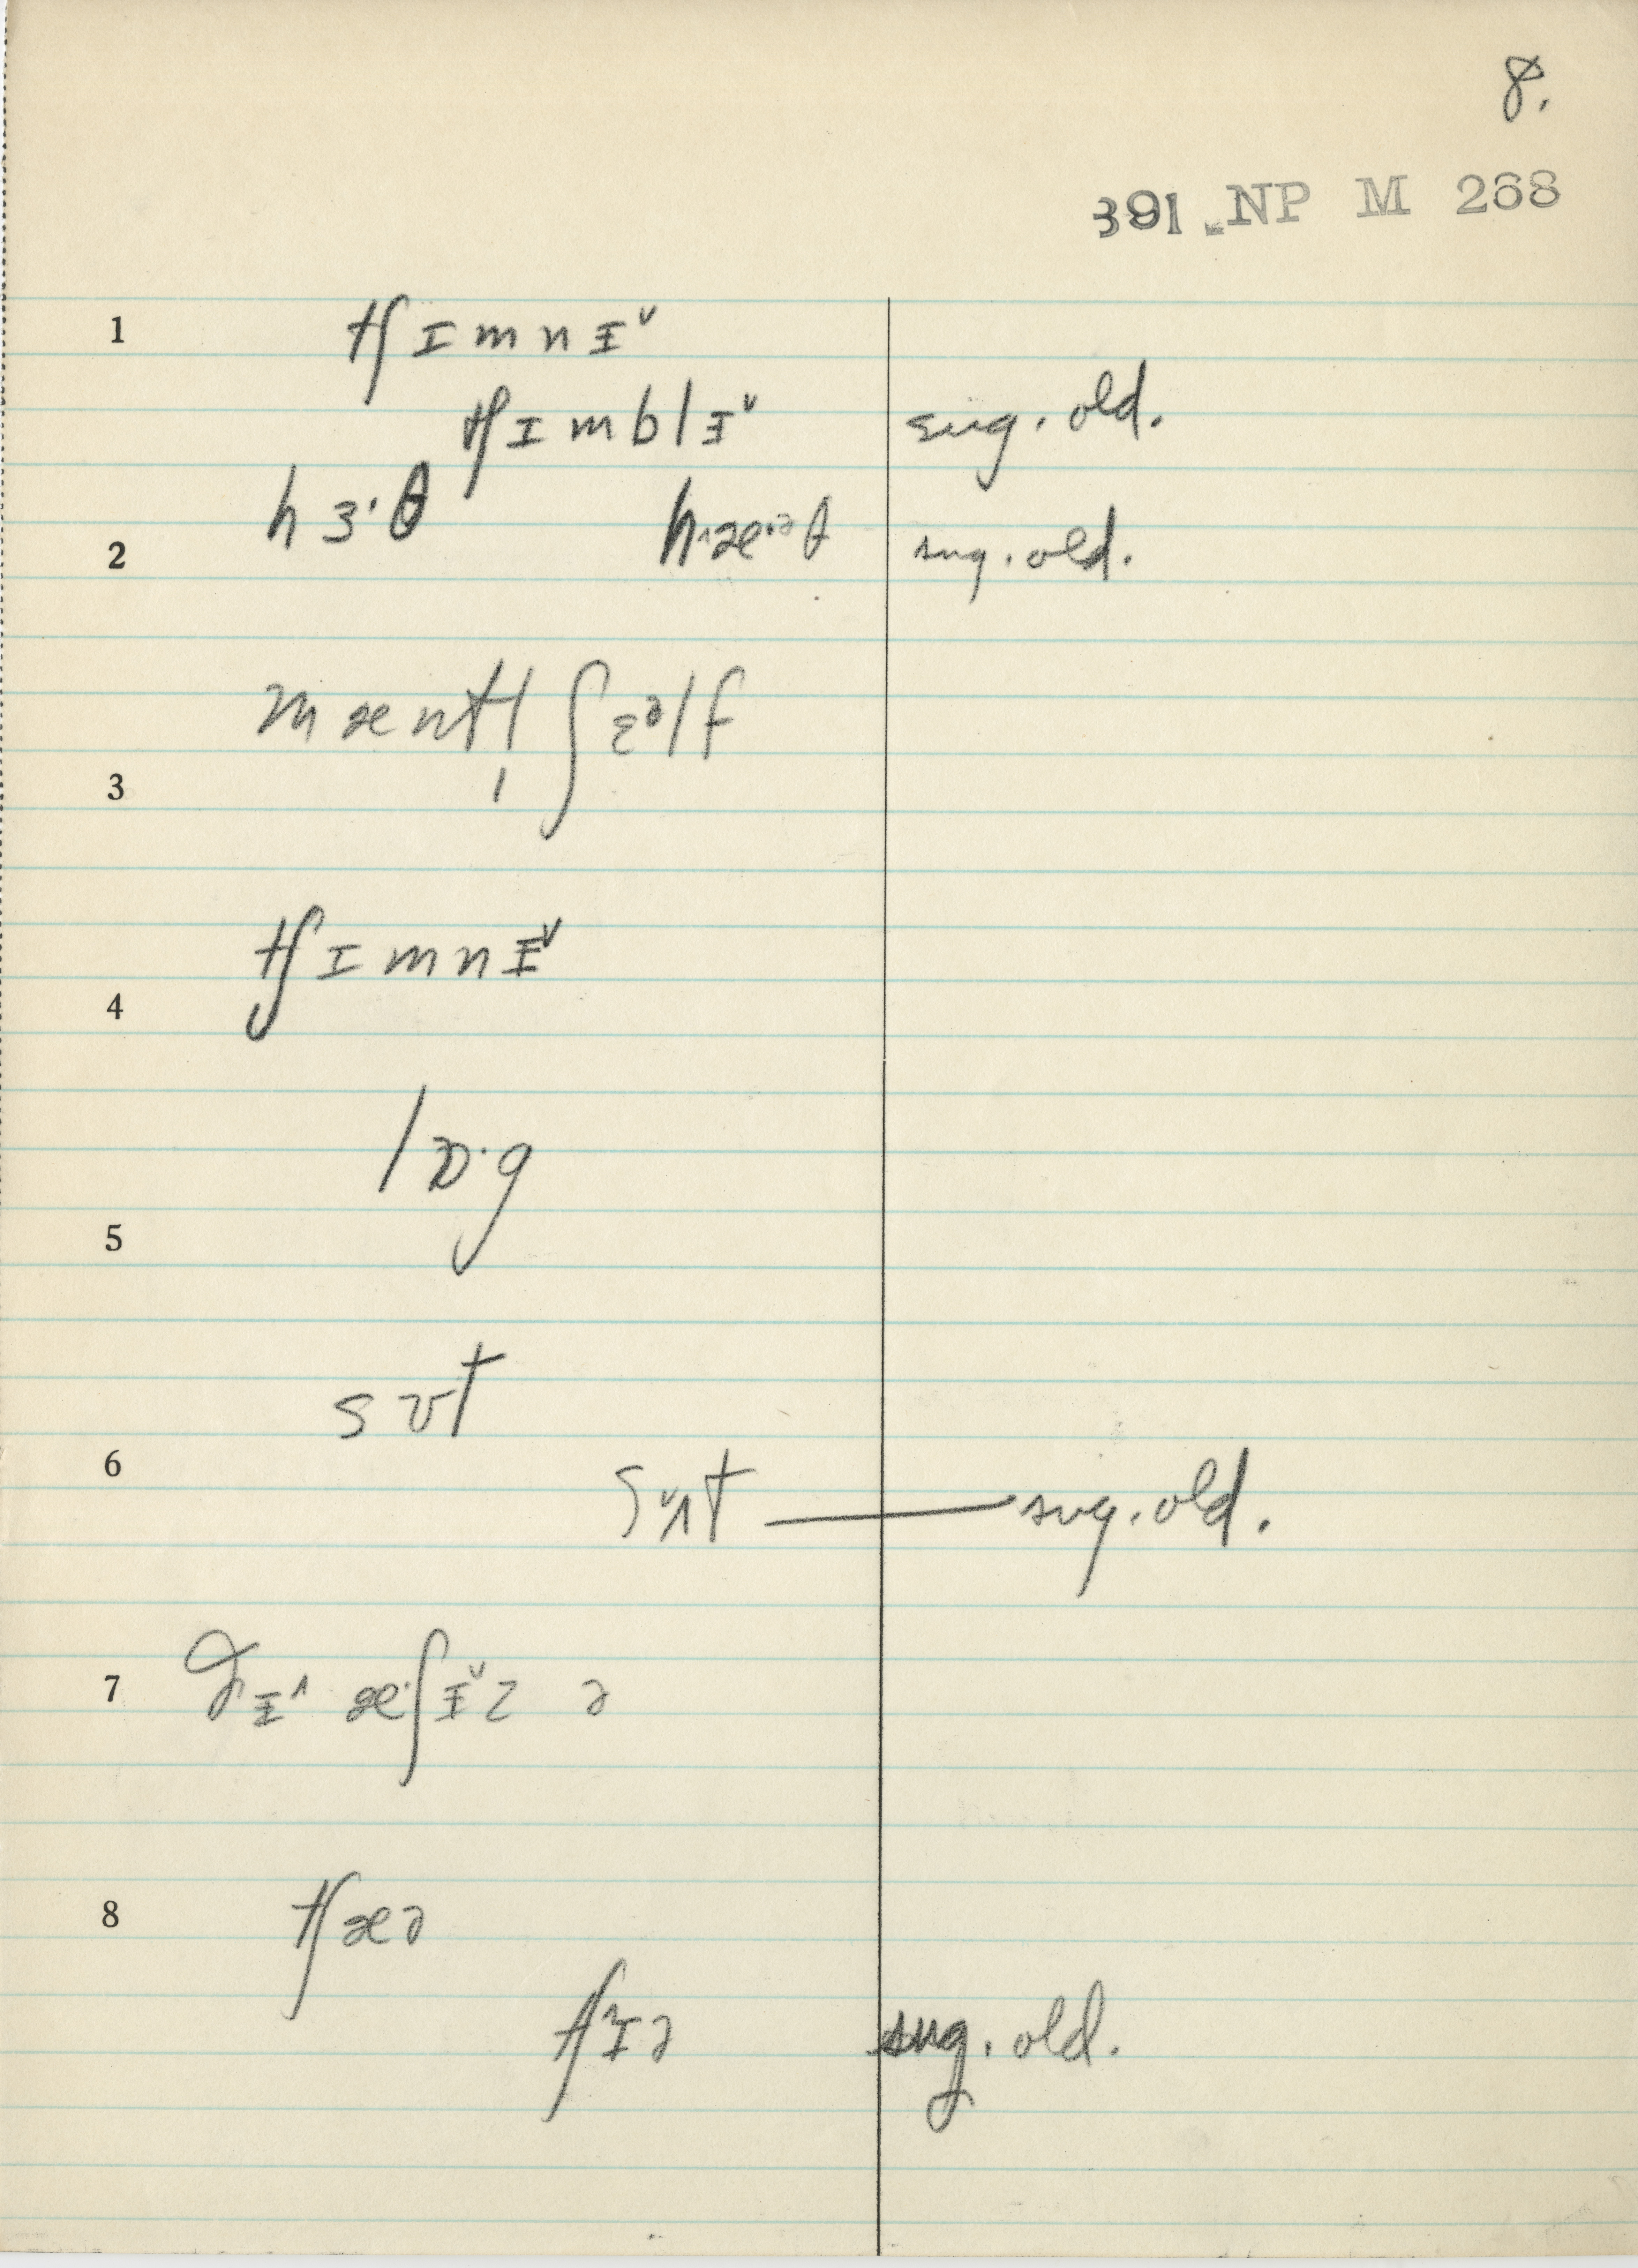 8.
391 NP M 268
1 tʃɪmnɨ˅
tʃɪmblɨ˅ sug. old.
hɜ·θ h æ·ᵊ θ sug. old.
2
mæntl̩ ʃɛᵊlf
3
tʃɪmnɨ˅
4
lɒ·g
5
sʊt
6
sʌ˅t — sug. old.
7 ðɨ˄ æ·ʃɨ˅z ə
8 tʃæə
tʃɪ˄ə sug. old.